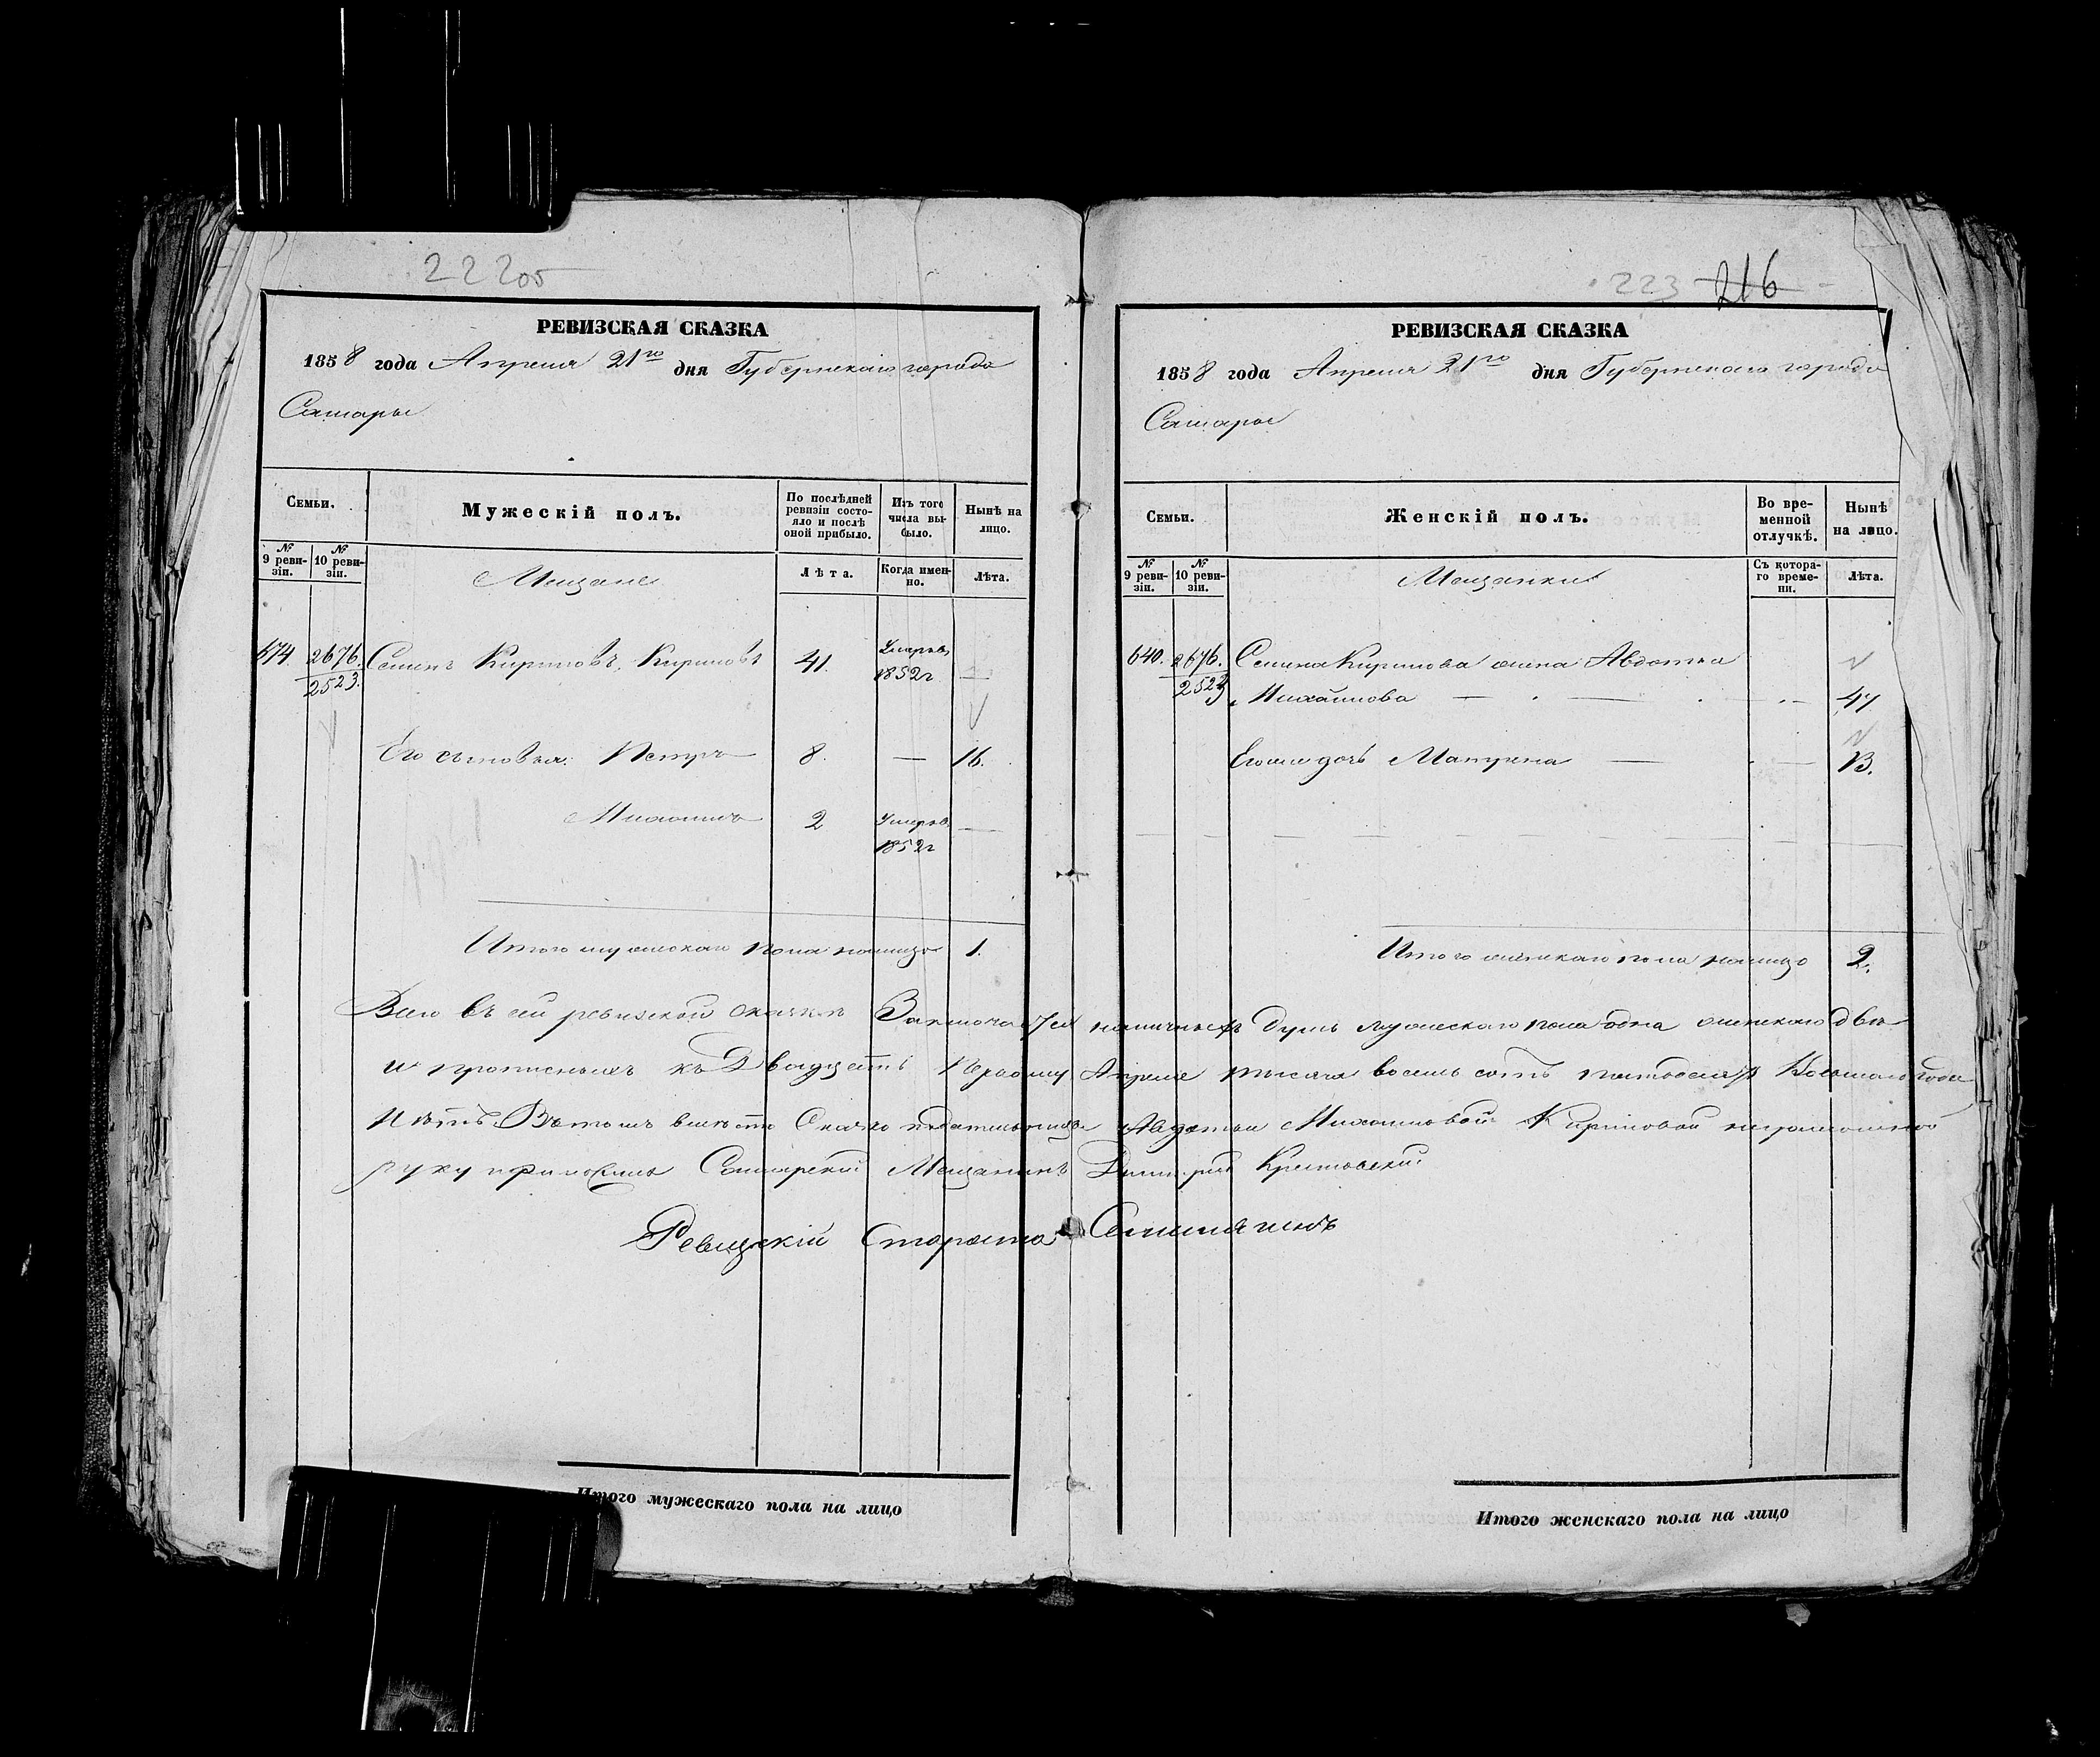 222об
РЕВИЗСКАЯ СКАЗКА
1858 года Апреля 21го дня Губернскаго города
Самары
Семьи.
Мужескій полъ.
По послѣдней ревизіи состояло и послѣ оной прибыло.
Изъ того числа выбыло.
Нынѣ на лицо.
№ 9 ревизіи.
№ 10 ревизіи.
Мещане
Лѣта.
Когда именно.
Лѣта.
2676. Семенъ Кириловъ Кириловъ 41. Умеръ
2523. 1852г
Его сыновья: Петръ 8. — 16.
Михаилъ 2 Умеръ —
1852г
Итого мужескаго пола налицо 1.
223 216
РЕВИЗСКАЯ СКАЗКА
1858 года Апреля 21го дня Губернскаго города
Самары
Семьи.
Женскій полъ.
Во временной отлучкѣ.
Нынѣ на лицо.
№ 9 ревизіи.
№ 10 ревизіи.
Мещанки
Съ котораго времени.
Лѣта.
640. 2676. Семена Кирилова жена Авдотья
2523 Михайлова — — 47
Его же дочь Матрена — — 13.
Итого женскаго пола налицо 2.
Всего въ сей ревизской сказке Заключается наличныхъ душъ мужескаго пола одна женскаго две
и прописныхъ къ Двадцать Первому Апреля тысяча восемь сотъ пятьдесятъ Восьмаго года
Нѣтъ. Вътомъ вместо Сказко подательницы Авдотьи Михайловой Кириловой неграмотной
руку приложилъ Самарской Мещанинъ Дмитрій
Ревизскій Староста
Итого мужескаго пола на лицо
Итого женскаго пола на лицо